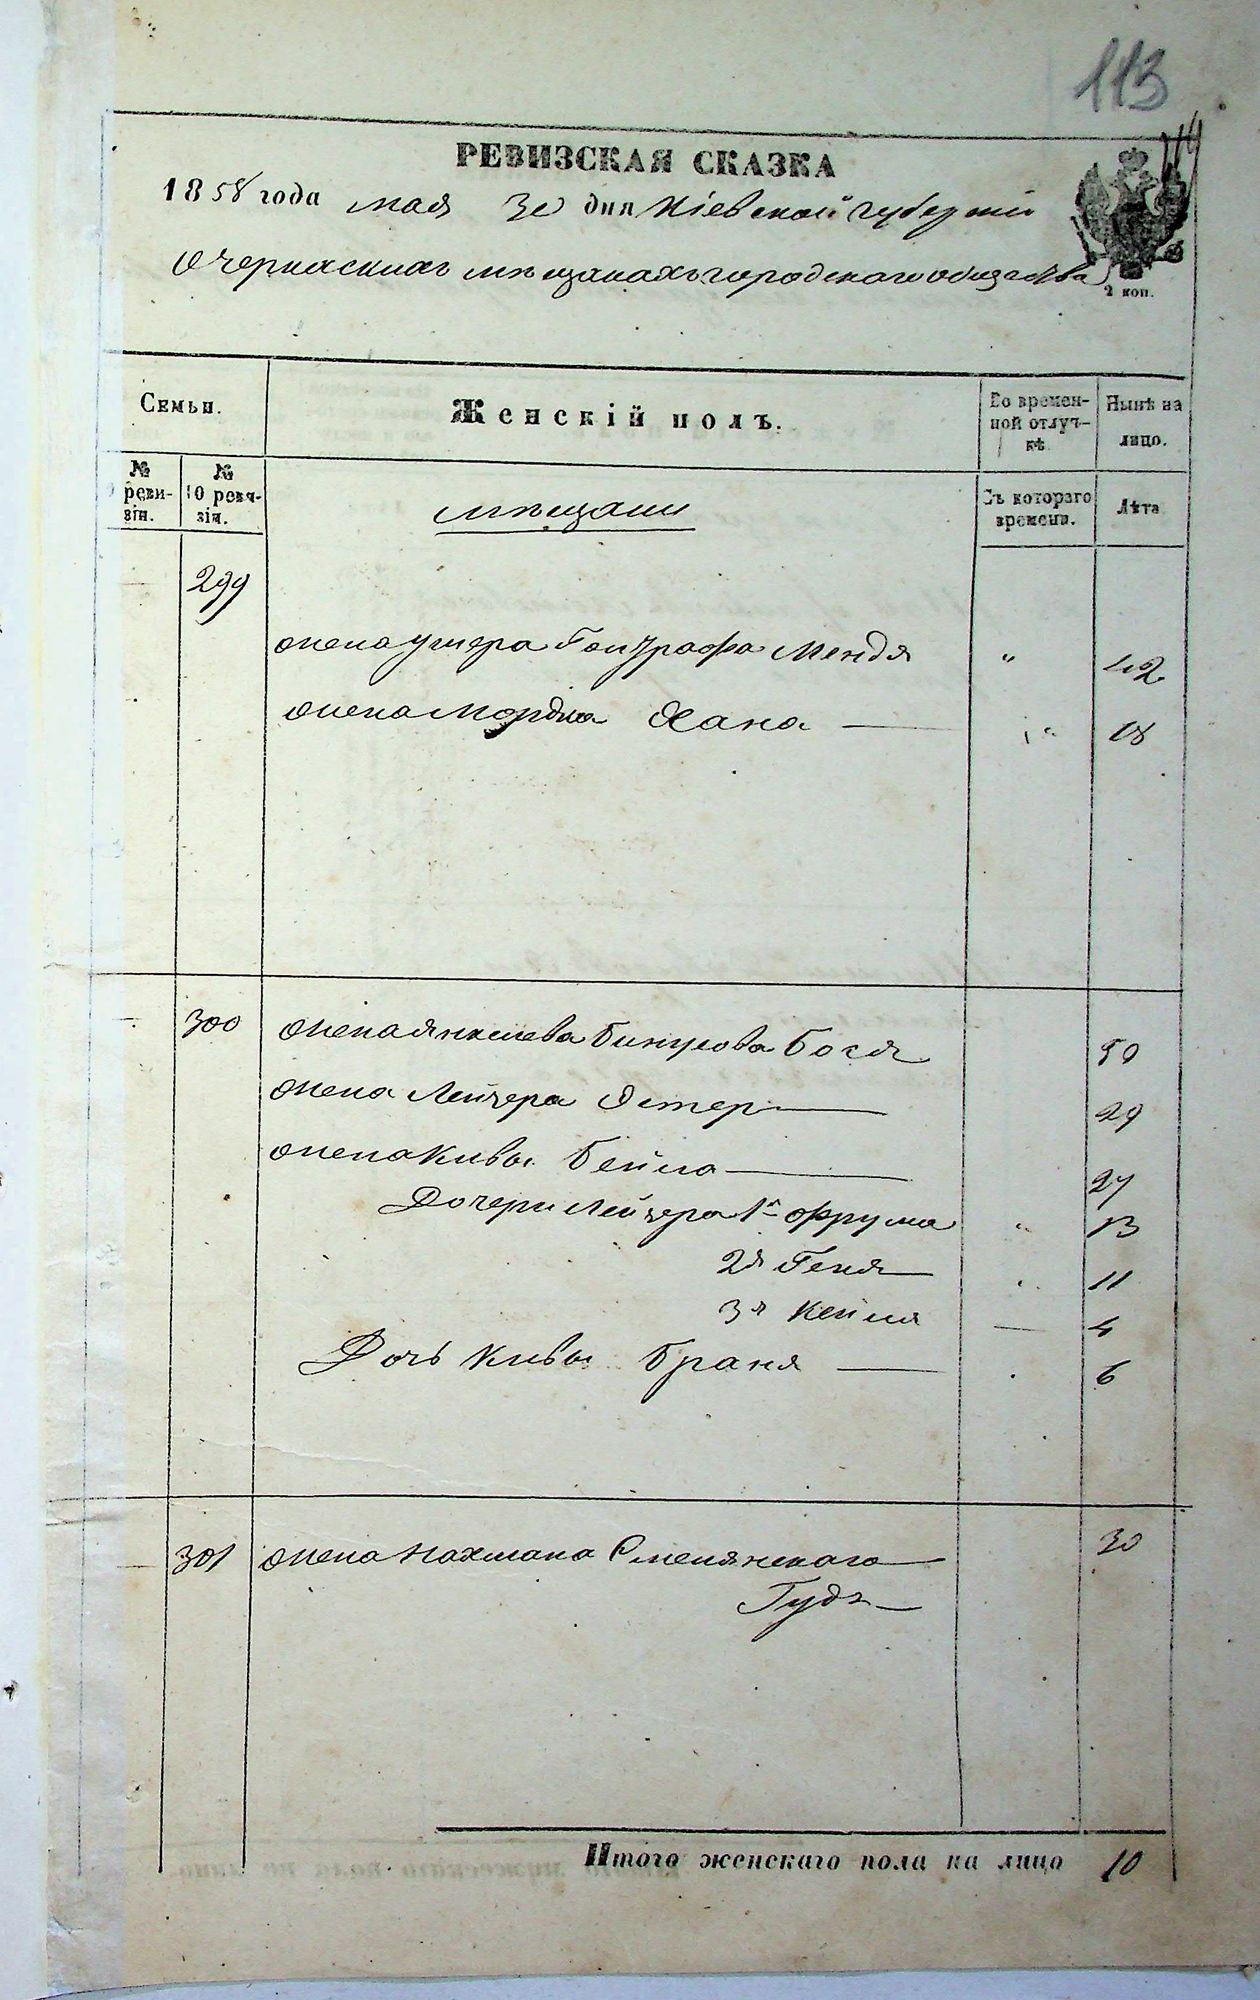 113
РЕВИЗСКАЯ СКАЗКА
1858 года мая 30 дня Кіевской губерніи
О черкаскихъ мѣщанахъ городскаго общества
2 коп.
Семьи.
Женскій полъ.
Во времен-
ной отлуч-
кѣ.
Нынѣ на
лицо.
№
реви-
зіи.
№
10 реви-
зіи.
мѣщани
Съ котораго
времени.
Лѣта
299
жена Ушера Гонграфа Мендя " 42
жена Мордка Хана — " 18
300 жена Янкелева Бинусова Бося 50
жена Лейзера Эстер — 29
жена Кивы Бейла — 27
Дочери Лейзера 1я Фрума " 13
2я Геня — 11
3я Кейля — 4
Дочь Кивы Браня — 6
301 жена Нахмана Смелянскаго — 30
Гудя —
Итого женскаго пола на лицо 10